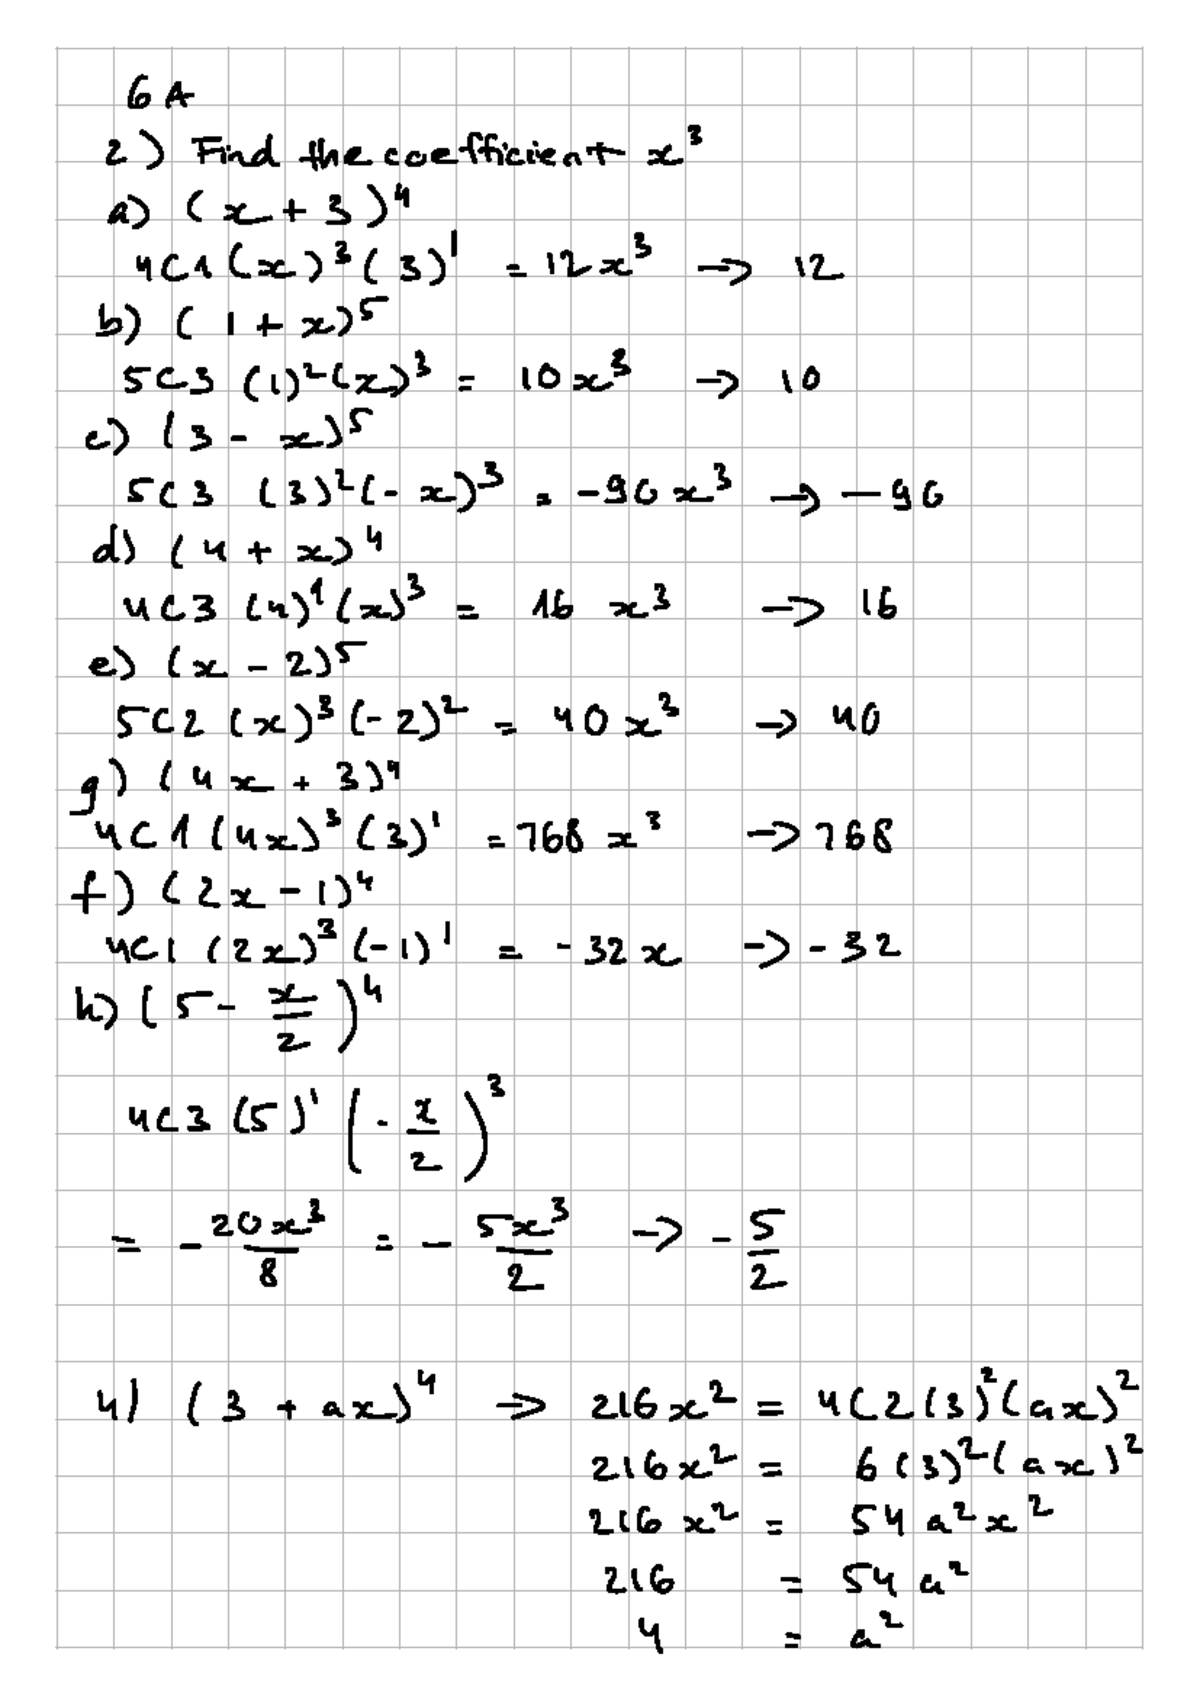 6 A
2) Find the coefficient x³
a) (x + 3)⁴
4C1 (x)³ (3)¹ = 12x³ → 12
b) (1 + x)⁵
5C3 (1)² (x)³ = 10x³ → 10
c) (3 - x)⁵
5C3 (3)² (-x)³ = -90x³ → -90
d) (4 + x)⁴
4C3 (4)¹ (x)³ = 16 x³ → 16
e) (x - 2)⁵
5C2 (x)³ (-2)² = 40x³ → 40
g) (4x + 3)⁴
4C1 (4x)³ (3)¹ = 768 x³ → 768
f) (2x - 1)⁴
4C1 (2x)³ (-1)¹ = -32x → -32
h) (5 - x/2)⁴
4C3 (5)¹ (-x/2)³
= -20x³/8 = -5x³/2 → -5/2
4) (3 + ax)⁴ → 216x² = 4C2 (3)² (ax)²
216x² = 6 (3)² (ax)²
216x² = 54 a²x²
216 = 54 a²
4 = a²